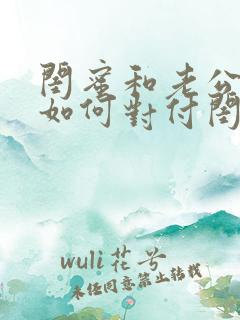 閨蜜和老公
如何對付閨
wuli花兮
未经同意禁止转载